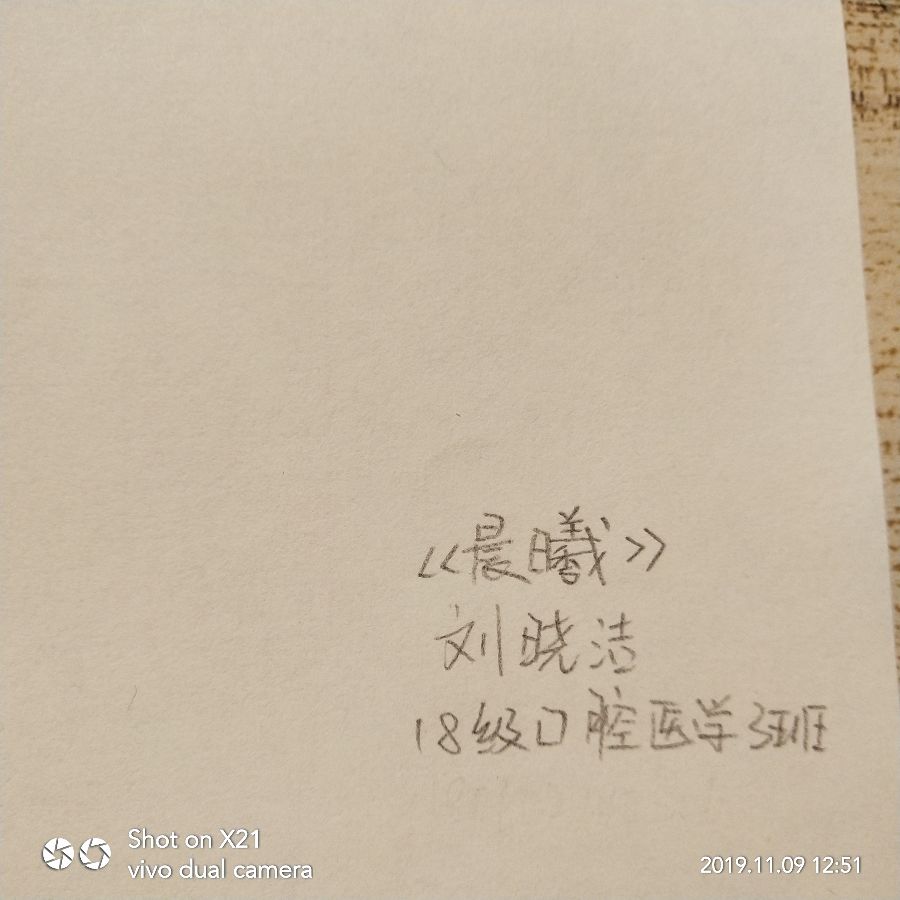 《晨曦》
刘晓洁
18级口腔医学3班
Shot on X21
vivo dual camera
2019.11.09 12:51